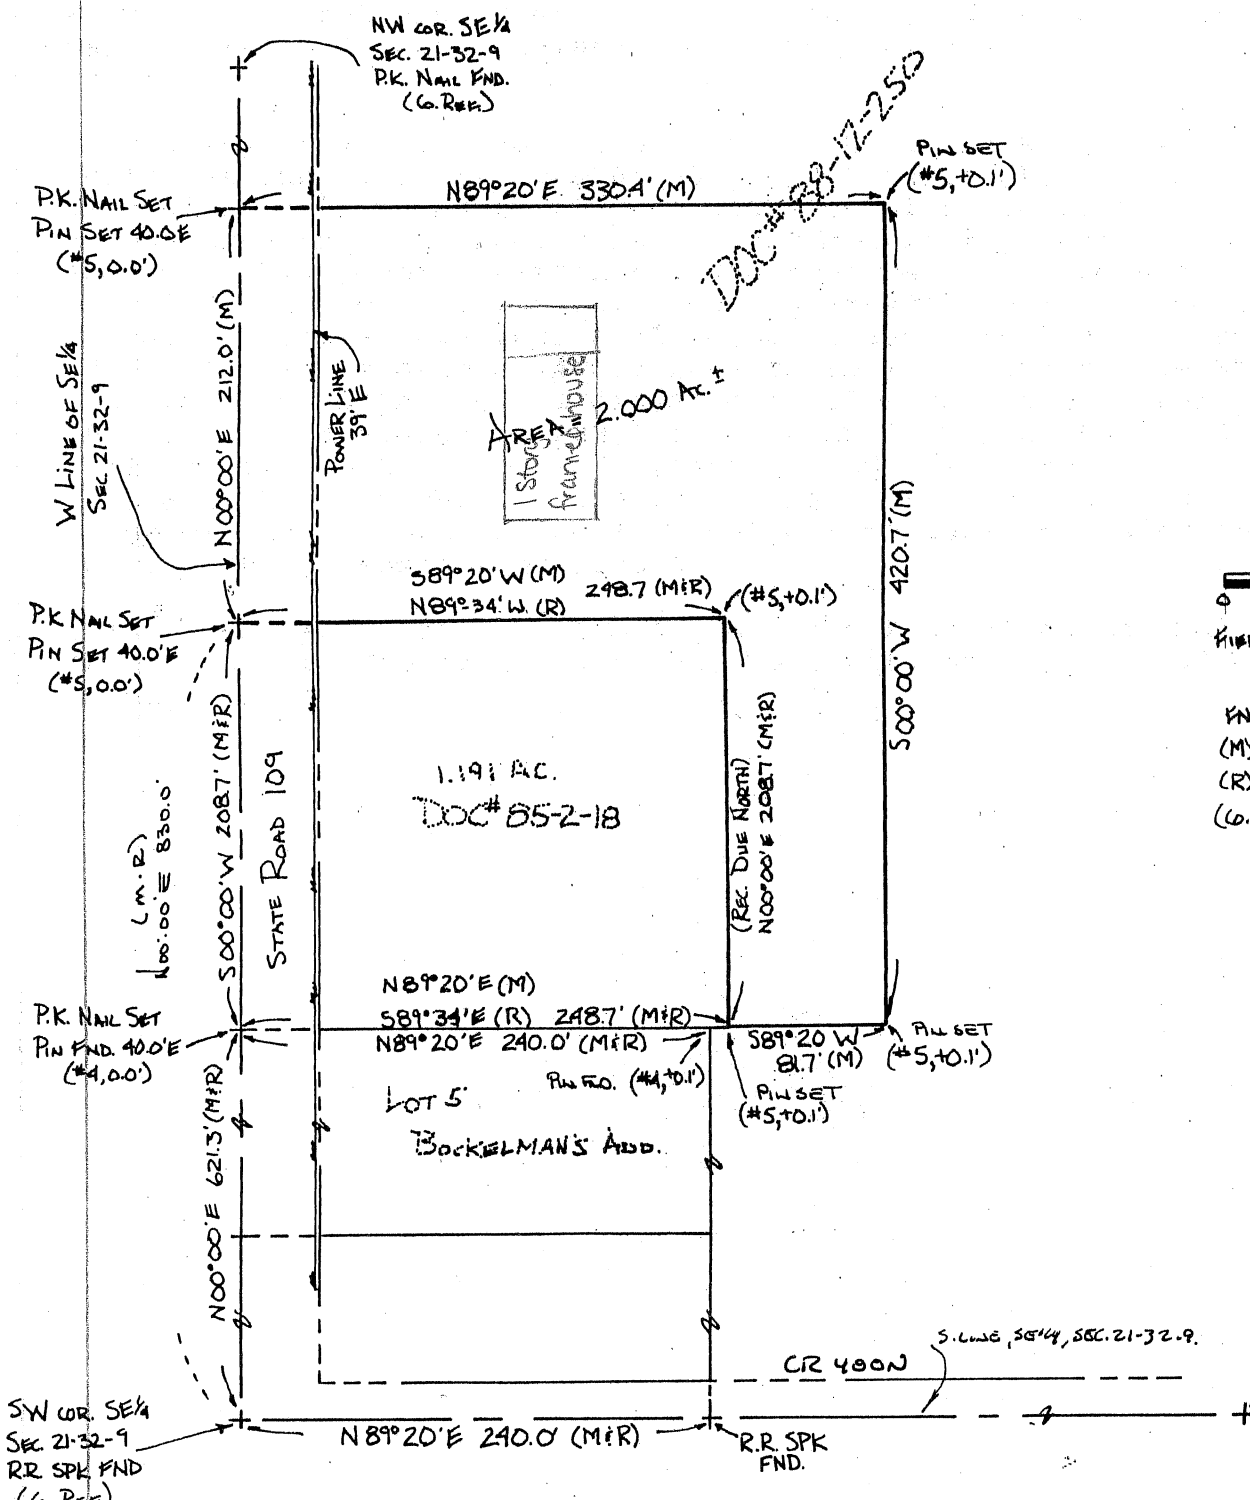 NW COR. SE¼
SEC. 21-32-9
P.K. NAIL FND.
(Co. REF.)
DOC# 88-12-250
PIN SET
(#5,+0.1')
N89°20'E. 330.4' (M)
P.K. NAIL SET
PIN SET 40.0E
(#5,0.0')
N00°00'E 212.0' (M)
W LINE OF SE¼
SEC 21-32-9
POWER LINE
39' E
AREA 2.000 Ac.±
1 Story
frame house
S00°00'W 420.7' (M)
S89°20'W (M)
N89°-34'W. (R)
248.7 (M&R)
(#5,+0.1')
P.K NAIL SET
PIN SET 40.0'E
(#5,0.0')
S00°00'W 208.7' (M&R)
STATE ROAD 109
(M.R)
N00°:00'E 830.0'
1.191 AC.
DOC# 85-2-18
(REC. DUE NORTH)
N00°00'E 208.7' (M&R)
FN
(M)
(R)
(Co.
0
N89°20'E (M)
S89°34'E (R) 248.7' (M&R)
N89°20'E 240.0' (M&R)
P.K. NAIL SET
PIN FND. 40.0'E
(#4,0.0')
S89°20 W
81.7' (M)
PIN SET
(#5,+0.1')
PIN FND. (#4,+0.1')
PIN SET
(#5,+0.1')
LOT 5
BOCKELMAN'S ADD.
N00°00'E 621.3' (M&R)
S. LINE, SE¼, SEC. 21-32-9.
CR 400N
SW COR. SE¼
SEC. 21-32-9
R.R. SPK FND
(Co. REF)
N89°20'E 240.0' (M&R)
R.R. SPK
FND.